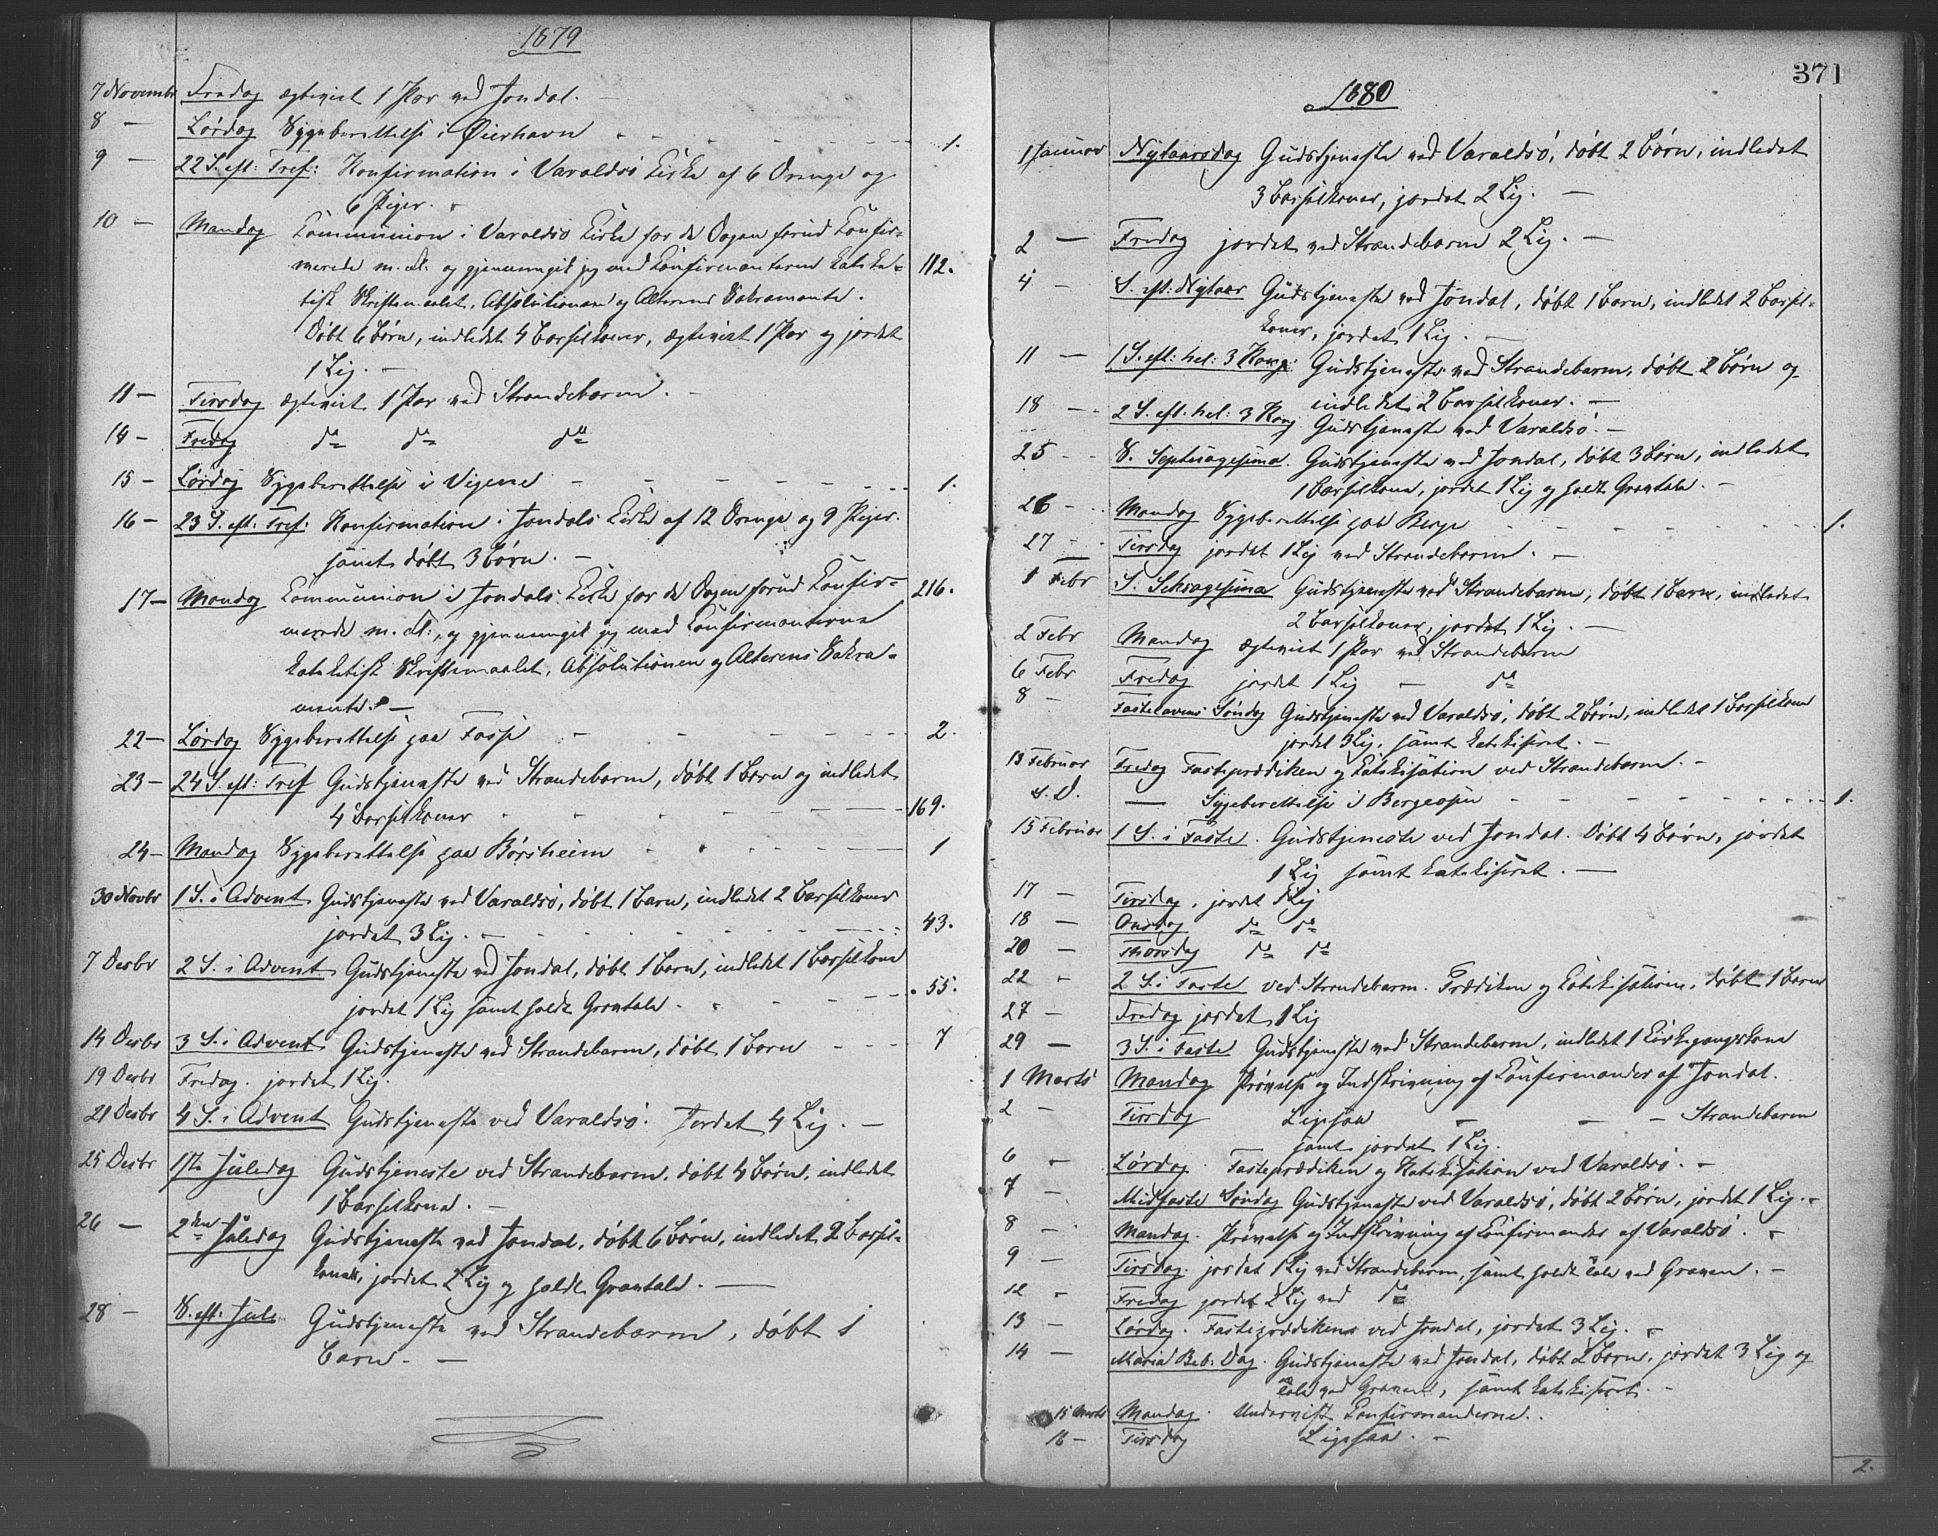 1879
7 Novembr Fredag ægteviet 1 Par ved Jondal. —
8 — Lørdag Sygeberettelse i Øierhavn 1.
9 — 22 S. eft: Tref: Konfirmation i Varaldsö Kirke af 6 Drenge og
6 Piger.
10 — Mandag Communion i Varaldsö Kirke for de Dagen forud Confir-
merede m. fl. og gjennemgik jeg med Confirmanterne kateke- 112.
tisk Skriftemaalet, Absolutionen og Alterens Sakramente.
Døbt 6 Børn, indledet 4 Barselkoner, ægteviet 1 Par og jordet
1 Lig. —
11 — Tirsdag ægteviet 1 Par ved Strandebarm. —
14 — Fredag do do do
15 — Lørdag Sygeberettelse i Vigene 1.
16 — 23 S. eft: Tref: Konfirmation i Jondals Kirke af 12 Drenge og 9 Piger.
samt døbt 3 Børn. —
17 — Mandag Communion i Jondals Kirke for de Dagen forud Confir- 216.
merede m. fl:, og gjennemgik jeg med Confirmanterne
kateketisk Skriftemaalet, Absolutionen og Alterens Sakra-
mente. —
22 — Lørdag Sygeberettelse paa Fosse 2.
23 — 24 S. eft: Tref Gudstjeneste ved Strandebarm, døbt 1 Barn og indledet
4 Barselkoner 169.
24 — Mandag Sygeberettelse paa Børsheim 1
30 Novbr 1 S. i Advent Gudstjeneste ved Varaldsö, døbt 1 Barn, indledet 2 Barselkoner
jordet 3 Lig. — 43.
7 Decbr 2 S. i Advent Gudstjeneste ved Jondal, døbt 1 Barn, indledet 1 Barselkone
jordet 1 Lig samt holdt Gravtale. 55.
14 Decbr 3 S. i Advent Gudstjeneste ved Strandebarm, døbt 1 Barn 7
19 Decbr Fredag. jordet 1 Lig.
21 Decbr 4 S. i Advent Gudstjeneste ved Varaldsö. Jordet 4 Lig. —
25 Decbr 1ste Juledag Gudstjeneste ved Strandebarm. døbt 4 Børn, indledet
1 Barselkone. —
26 — 2den Juledag Gudstjeneste ved Jondal, døbt 6 Børn, indledet 2 Barsel-
koner, jordet 2 Lig og holdt Gravtale. —
28 — S. eft: Jul Gudstjeneste ved Strandebarm, døbt 1
Barn. —
371
1880
1 Januar Nytaarsdag Gudstjeneste ved Varaldsö, døbt 2 Børn, indledet
3 Barselkoner, jordet 2 Lig. —
2 — Fredag jordet ved Strandebarm 2 Lig. —
4 — S. eft: Nytaar Gudstjeneste ved Jondal, døbt 1 Barn, indledet 2 Barsel-
koner, jordet 1 Lig. —
11 — 1 S. eft: hel: 3 Kong. Gudstjeneste ved Strandebarm, døbt 2 Børn og
indledet 2 Barselkoner. —
18 — 2 S. eft. hel: 3 Kong Gudstjeneste ved Varaldsö. —
25 — S. Septuagesima. Gudstjeneste ved Jondal, døbt 3 Børn, indledet
1 Barselkone, jordet 1 Lig og holdt Gravtale. —
26 — Mandag Sygeberettelse paa Berge 1.
27 — Tirsdag jordet 1 Lig ved Strandebarm. —
1 Febr S. Seksagesima Gudstjeneste ved Strandebarm, døbt 1 Barn, indledet
2 Barselkoner, jordet 1 Lig. —
2 Febr Mandag ægteviet 1 Par ved Strandebarm
6 Febr Fredag jordet 1 Lig — do
8 — Fastelavens Søndag Gudstjeneste ved Varaldsö, døbt 2 Børn, indledet 1 Barselkone
jordet 3 Lig, samt katekiseret. —
13 Februar Fredag Fasteprædiken og Katekisation ved Strandebarm. —
s. D. — Sygeberettelse i Bergeosen 1.
15 Februar 1 S. i Faste. Gudstjeneste ved Jondal. Døbt 4 Børn, jordet
1 Lig samt katekiseret. —
17 — Tirsdag, jordet 1 Lig
18 — Onsdag do do
20 — Thorsdag do do
22 — 2 S. i Faste ved Strandebarm. Prædiken og Katekisation, døbt 1 Barn
27 — Fredag jordet 1 Lig
29 — 3 S. i Faste Gudstjeneste ved Strandebarm, indledet 1 Kirkegangskone
1 Marts Mandag Prøvelse og Indskrivning af Confirmander af Jondal.
2 — Tirsdag Ligesaa — — — Strandebarm
samt jordet 1 Lig.
6 — Lørdag. Fasteprædiken og Katekisation ved Varaldsö. —
7 — Midfaste Søndag Gudstjeneste ved Varaldsö, døbt 2 Børn, jordet 1 Lig. —
8 — Mandag. Prøvelse og Indskrivning af Confirmander af Varaldsö.
9 — Tirsdag. jordet 1 Lig ved Strandebarm, samt holdt Tale ved Graven. —
12 — Fredag jordet 2 Lig ved do
13 — Lørdag. Fasteprædiken ved Jondal, jordet 3 Lig. —
14 — Maria Beb. Dag. Gudstjeneste ved Jondal, døbt 2 Børn, jordet 3 Lig og
Tale ved Graven, samt katekiseret. —
15 Marts Mandag. Underviist Confirmanderne.
16 — Tirsdag Ligesaa. —
2.